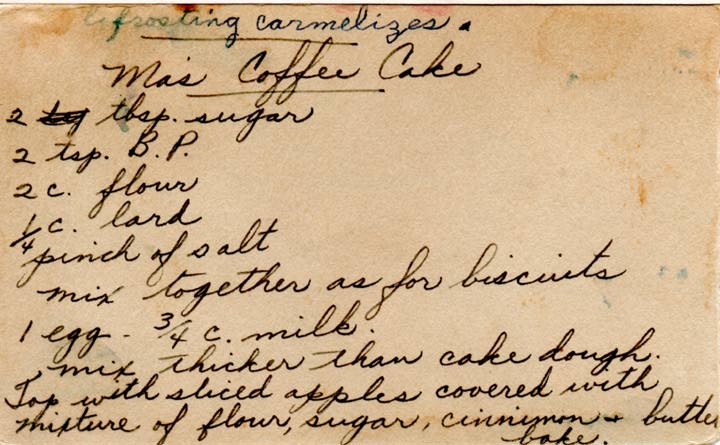 if frosting carmelizes.
Ma's Coffee Cake
2 tbsp. sugar
2 tsp. B.P.
2 c. flour
1/4 c. lard
pinch of salt
mix together as for biscuits
1 egg - 3/4 c. milk.
mix thicker than cake dough.
Top with sliced apples covered with
mixture of flour, sugar, cinnimon + butter
bake.